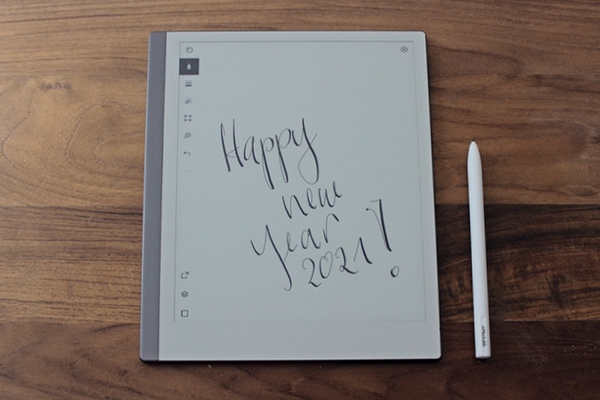 Happy
new
year
2021!
reMarkable